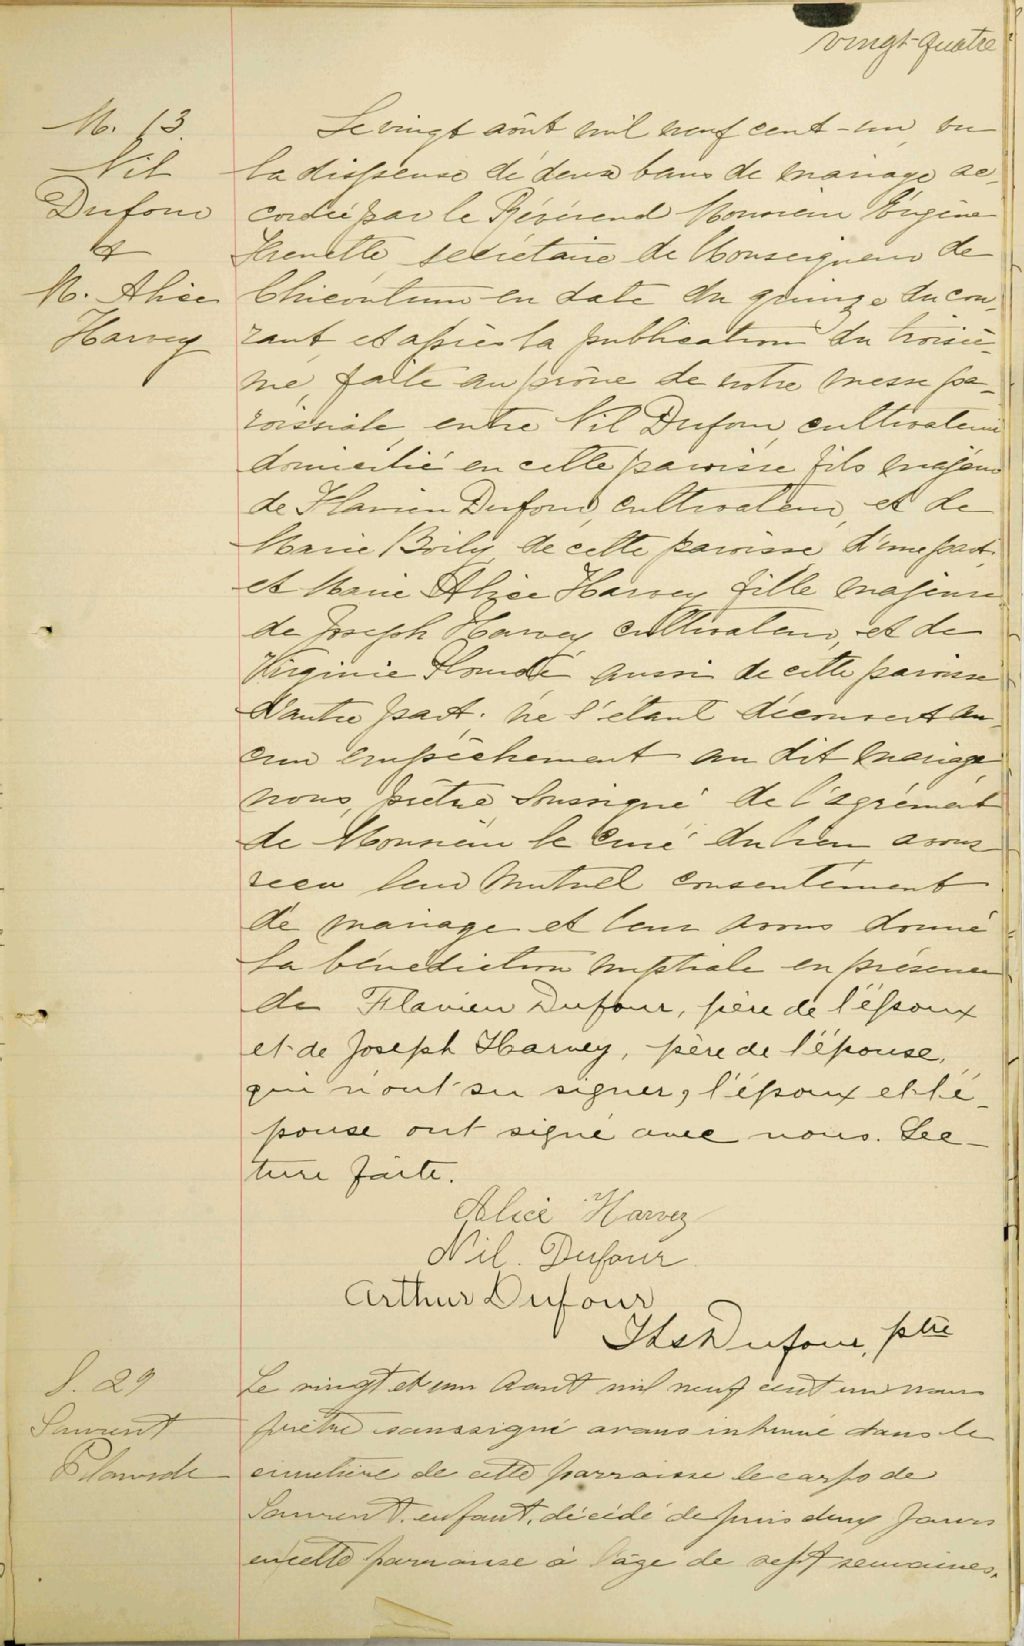 vingt-quatre
M. 13.
Nil
Dufour
&
M. Alice
Harvey
Le vingt août mil neuf cent-un, vu
la dispense de deux bans de mariage ac-
cordée par le Révérend Monsieur Eugène
Frenette, secrétaire de Monseigneur de
Chicoutimi en date du quinze du cou-
rant, et après la publication du troisiè-
me, faite au prône de notre messe pa-
roissiale, entre Nil Dufour, cultivateur
domicilié en cette paroisse fils majeur
de Flavien Dufour, cultivateur, et de
Marie Boily, de cette paroisse d'une part,
et Marie Alice Harvey fille majeure
de Joseph Harvey, cultivateur, et de
Virginie aussi de cette paroisse
d'autre part; ne s'étant découvert au-
cun empêchement au dit mariage,
nous, prêtre soussigné de l'agrément
de Monsieur le curé du lieu avons
reçu leur mutuel consentement
de mariage et leur avons donné
la bénédiction nuptiale en présence
de Flavien Dufour, père de l'époux
et de Joseph Harvey, père de l'épouse,
qui n'ont su signer, l'époux et l'é-
pouse ont signé avec nous. Lec-
ture faite.
Alice Harvey
Nil. Dufour
Arthur Dufour
Ths Dufour, ptre
S. 29
Laurent
Plourde
Le vingt et un Aout mil neuf cent un nous
prêtre soussigné avons inhumé dans le
cimetière de cette parroisse le corps de
Laurent. enfant, décédé depuis deux jours
en cette parroisse à l'âge de sept semaines,